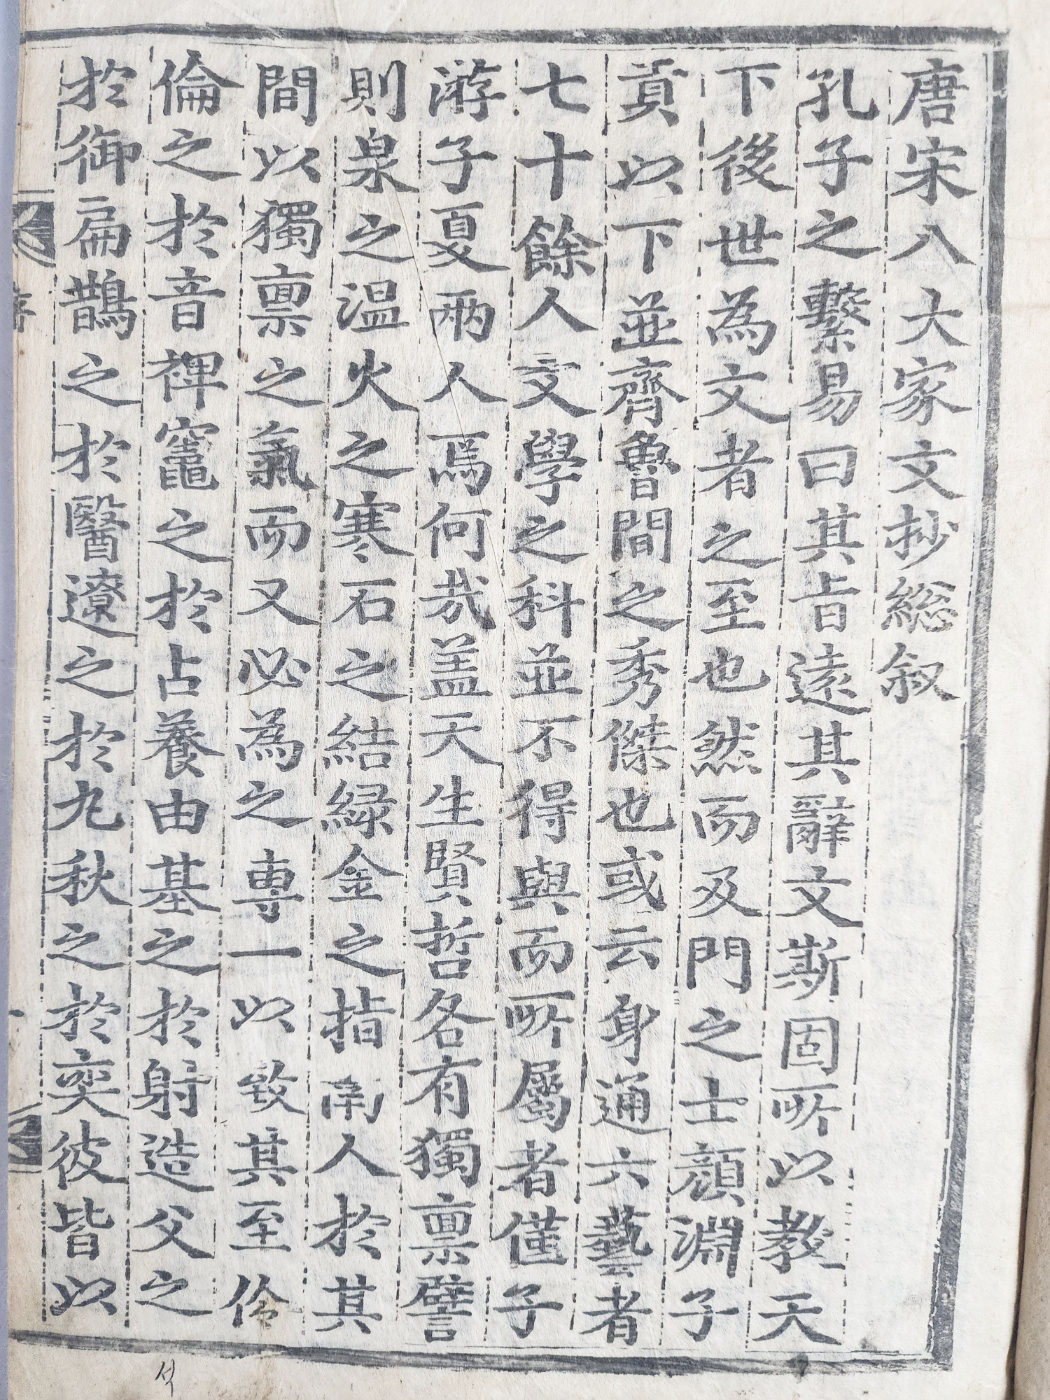 唐宋八大家文抄総叙
孔子之繫易曰其旨遠其辭文斯固所以教天
下後世為文者之至也然而及門之士顔淵子
貢以下並齊魯間之秀傑也或云身通六藝者
七十餘人文學之科並不得與而所屬者僅子
游子夏兩人焉何哉盖天生賢哲各有獨禀譬
則泉之温火之寒石之結緑金之指南人於其
間以獨禀之氣而又必為之専一以致其至伶
倫之於音裨竈之於占養由基之於射造父之
於御扁鵲之於醫遼之於九秋之於奕彼皆以
석